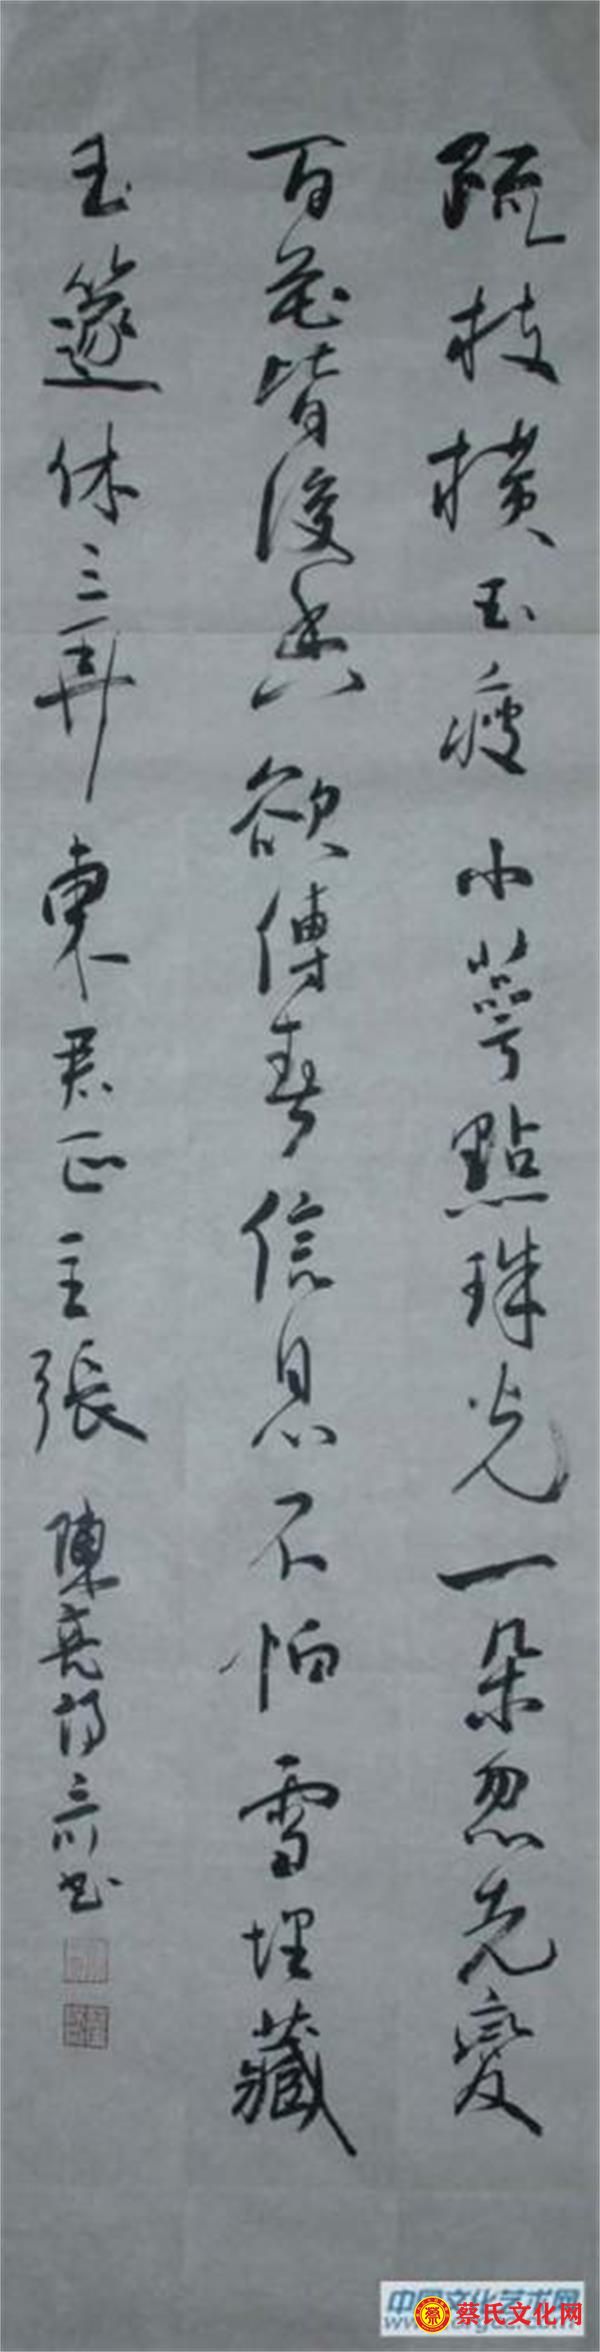 疏枝橫玉瘦小萼點珠光一朵忽先變
百花皆後香欲傳春信息不怕雪埋藏
玉篴休三弄東君正主張
陳亮詩三川书
中国文化艺术网
蔡氏文化网